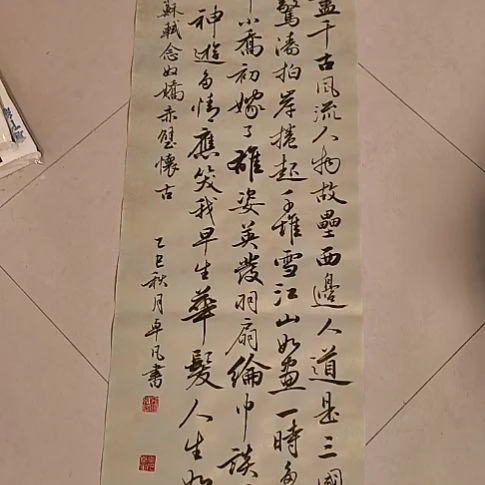 盡千古風流人物故壘西邊人道是三國
驚濤拍岸捲起千堆雪江山如畫一時多
小喬初嫁了雄姿英發羽扇綸巾談
神遊多情應笑我早生華髮人生如
蘇軾念奴嬌赤壁懷古
乙巳秋月卓凡書